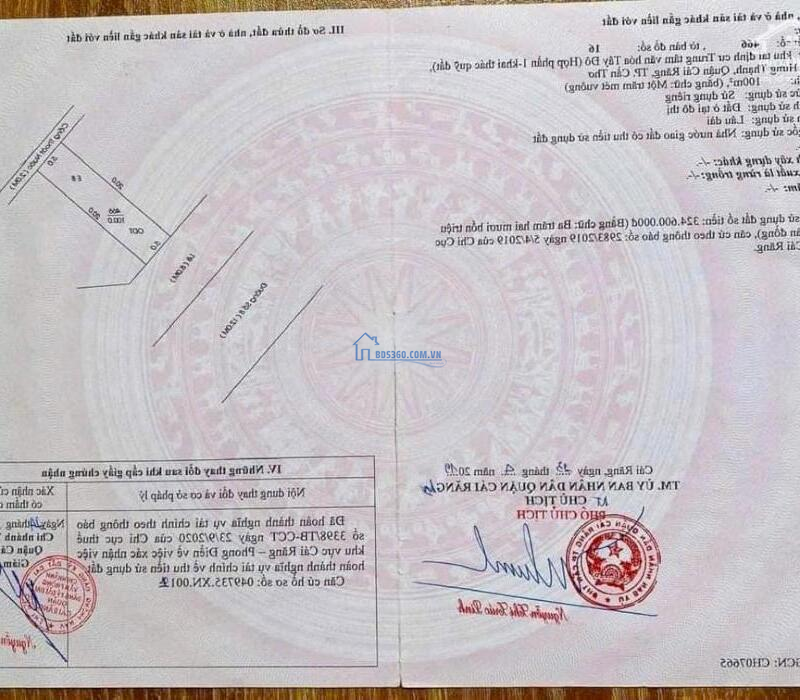 , nhà ở và tài sản khác gắn liền với đất
466 , tờ bản đồ số: 16
khu tái định cư Trung tâm văn hóa Tây Đô (Hợp phần 1-khai thác quỹ đất),
Hưng Thạnh, Quận Cái Răng, TP. Cần Thơ
100m², (bằng chữ: Một trăm mét vuông)
sử dụng: Sử dụng riêng
sử dụng: Đất ở tại đô thị
sử dụng: Lâu dài
sử dụng: Nhà nước giao đất có thu tiền sử dụng đất
xây dựng khác: -/-
xuất là rừng trồng: -/-
-/-
sử dụng đất số tiền: 324.600.000đ (Bằng chữ: Ba trăm hai mươi bốn triệu
đồng), căn cứ theo thông báo số: 2983/2019 ngày 5/4/2019 của Chi Cục
Cái Răng.
Cái Răng, ngày tháng năm 2019
TM. ỦY BAN NHÂN DÂN QUẬN CÁI RĂNG
KT CHỦ TỊCH
PHÓ CHỦ TỊCH
Nguyễn Thị Trúc Linh
GCN: CH07665
III. Sơ đồ thửa đất, nhà ở và tài sản khác gắn liền với đất
Cống thoát nước (2.0M)
5.0
E 8
20.0
466
100.0
ODT
20.0
5.0
Lề (6.0M)
Đường Số 8 (12.0M)
BDS360.COM.VN
IV. Những thay đổi sau khi cấp giấy chứng nhận
Nội dung thay đổi và cơ sở pháp lý
Xác nhận của
có thẩm
Đã hoàn thành nghĩa vụ tài chính theo thông báo
số 3398/TB-CCT ngày 23/9/2020 của Chi cục thuế
khu vực Cái Răng – Phong Điền về việc xác nhận việc
hoàn thành nghĩa vụ tài chính về thu tiền sử dụng đất
Căn cứ hồ sơ số: 049735.XN.001
Ngày tháng
Chi nhánh
Quận Cái
Giám
Nguyễn